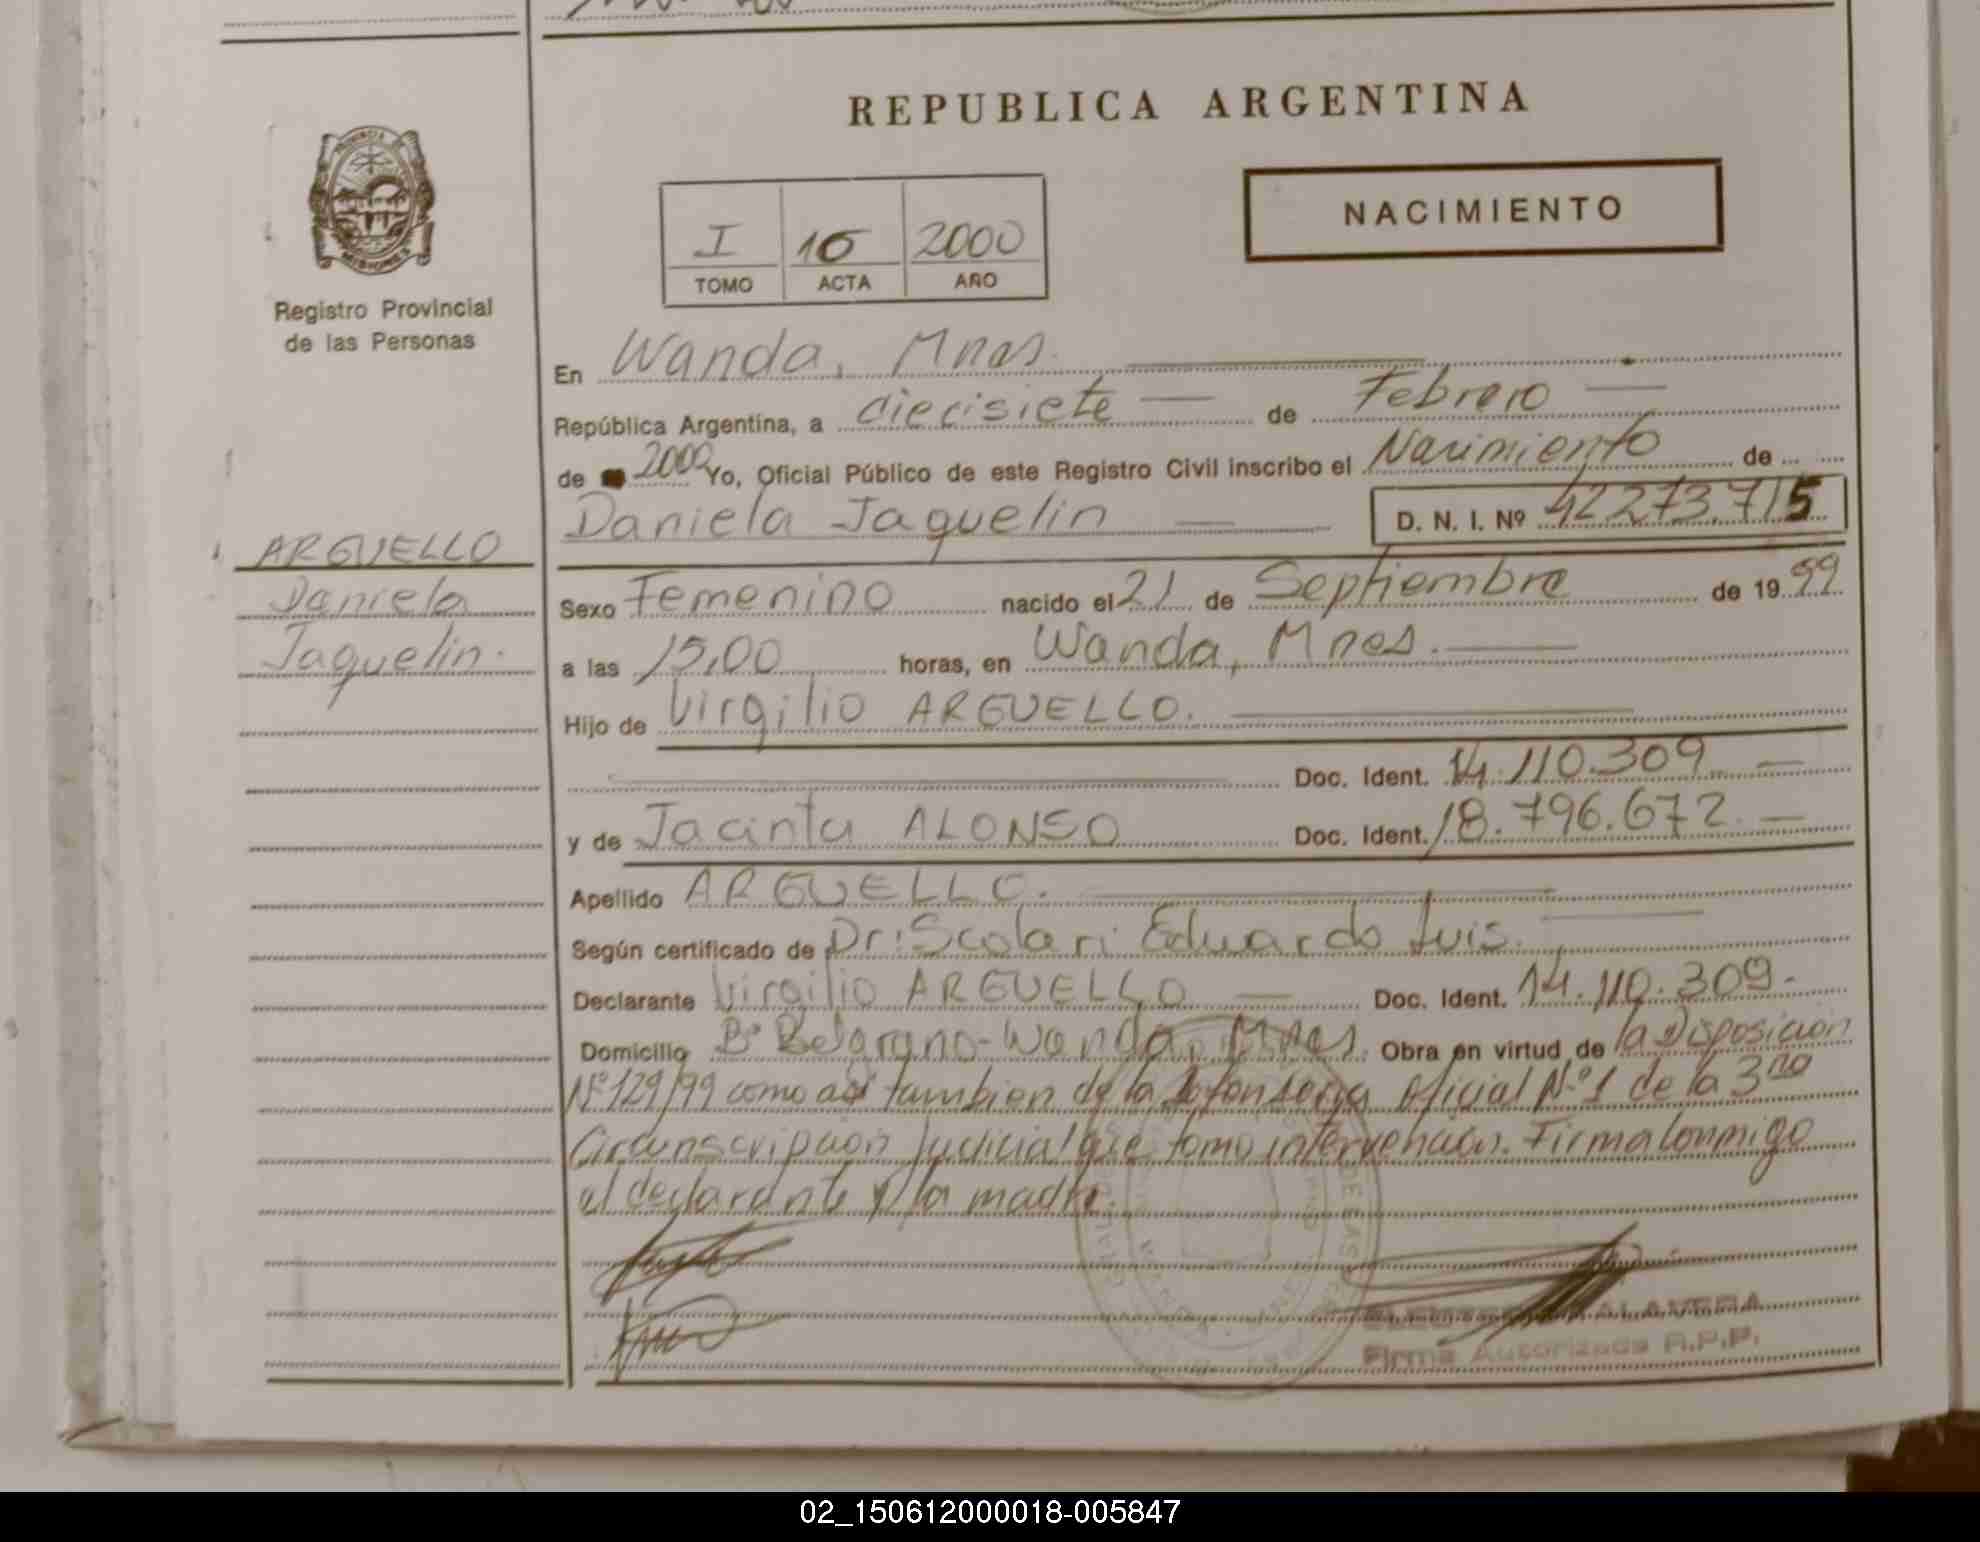 REPUBLICA ARGENTINA
NACIMIENTO
I 16 2000
TOMO ACTA AÑO
PROVINCIA DE MISIONES
Registro Provincial
de las Personas
En Wanda, Mnes.
República Argentina, a diecisiete de Febrero
de 2000 Yo, Oficial Público de este Registro Civil inscribo el Nacimiento de
Daniela Jaquelin D. N. I. Nº 42273.715
ARGUELLO
Daniela
Jaquelin.
Sexo Femenino nacido el 21 de Septiembre de 1999
a las 15,00 horas, en Wanda, Mnes.
Hijo de Virgilio ARGUELLO.
Doc. Ident. 14.110.309
y de Jacinta ALONSO Doc. Ident. 18.796.672
Apellido ARGUELLO.
Según certificado de Dr: Scolari Eduardo Luis.
Declarante Virgilio ARGUELLO Doc. Ident. 14.110.309.
Domicilio Bº Belgrano-Wanda, Mnes. Obra en virtud de la Disposicion
Nº 129/99 como asi tambien de la Defensoria Oficial Nº 1 de la 3ra
Circunscripcion Judicial que tomo intervencion. Firma conmigo
el declarante y la madre.
TALAVERA
Firma Autorizada R.P.P.
02_150612000018-005847